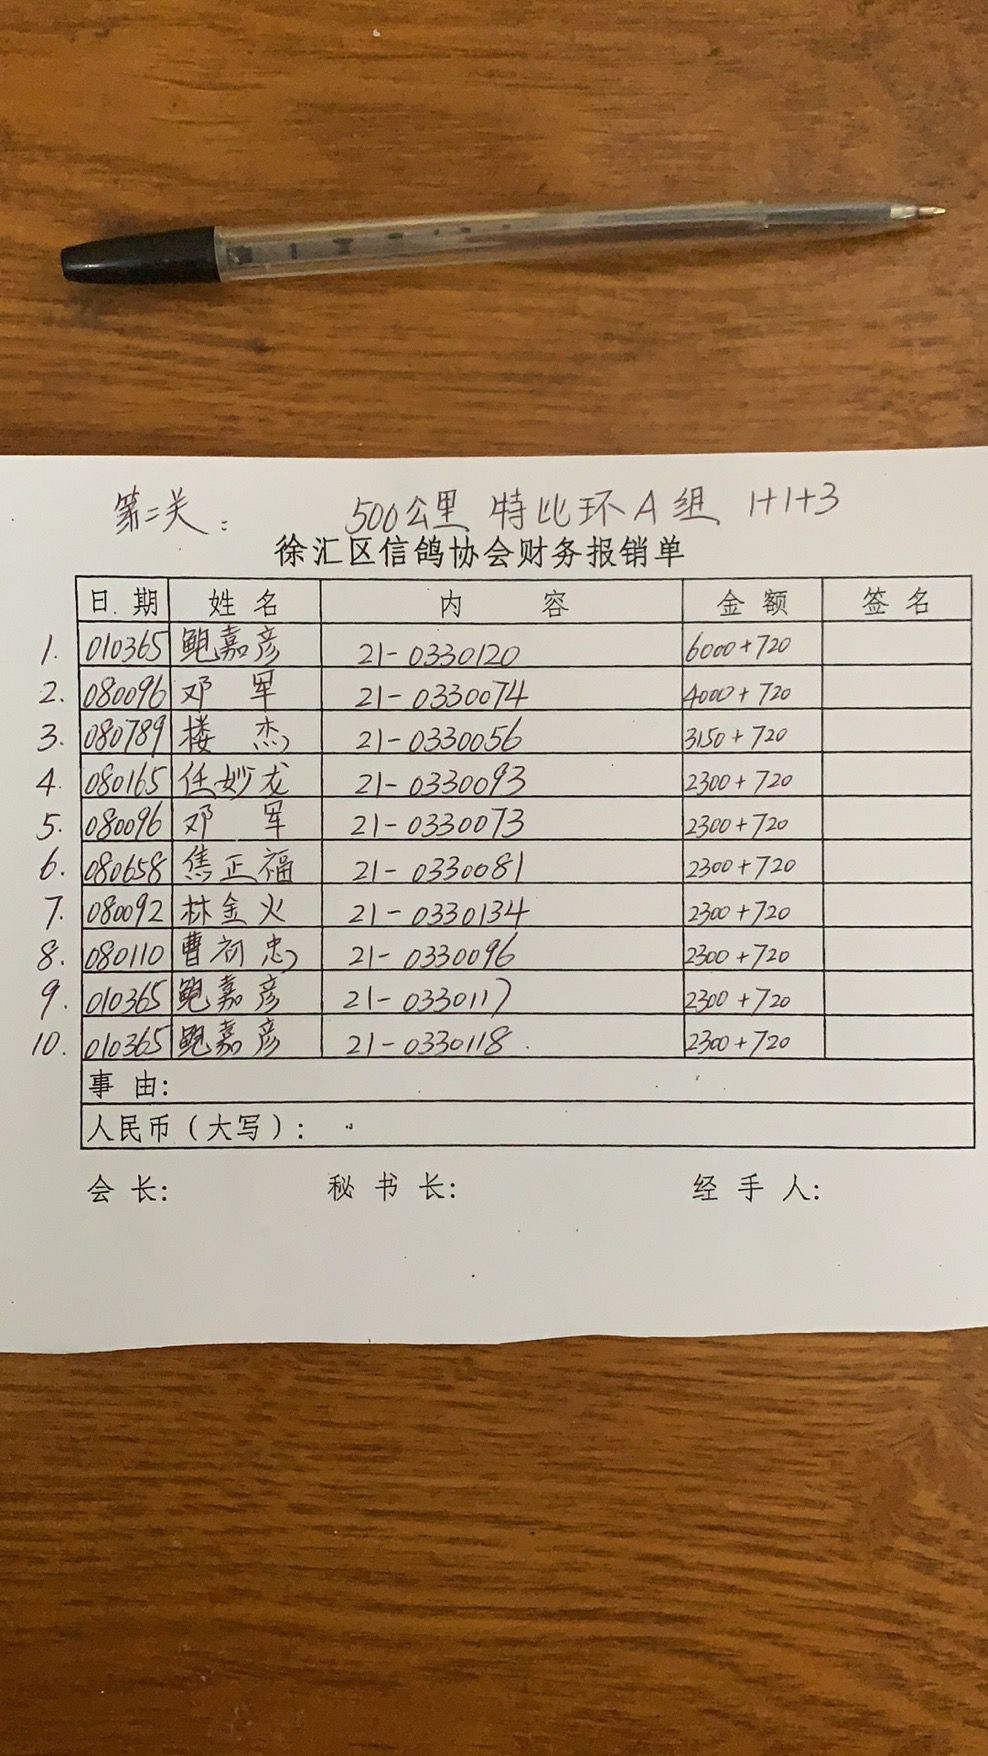 第二关: 500公里 特比环A组 1+1+3
徐汇区信鸽协会财务报销单
日期 姓名 内容 金额 签名
1. 010365 鲍嘉彦 21-0330120 6000+720
2. 080096 邓军 21-0330074 4000+720
3. 080789 楼杰 21-0330056 3150+720
4. 080165 任妙龙 21-0330093 2300+720
5. 080096 邓军 21-0330073 2300+720
6. 080658 焦正福 21-0330081 2300+720
7. 080092 林金火 21-0330134 2300+720
8. 080110 曹初忠 21-0330096 2300+720
9. 010365 鲍嘉彦 21-0330117 2300+720
10. 010365 鲍嘉彦 21-0330118 2300+720
事由:
人民币(大写):
会长: 秘书长: 经手人: